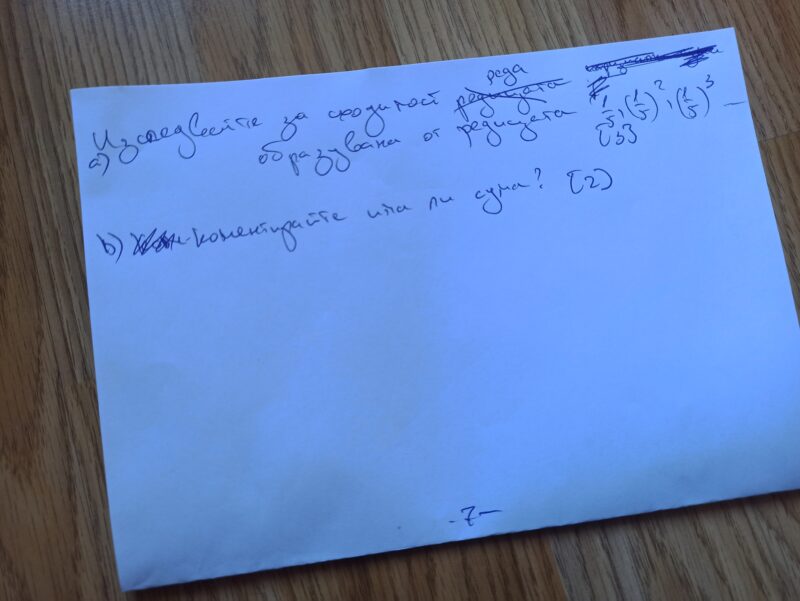 Изследвайте за сходимост реда
a) образувана от редицата 1/5, (1/5)², (1/5)³ —
[3]
b) коментирайте има ли сума? [2]
-7-